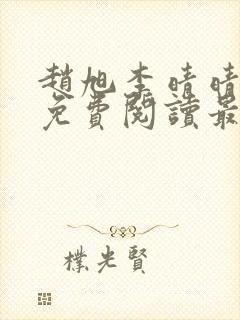 趙旭李晴晴
免費閱讀最
樸光賢